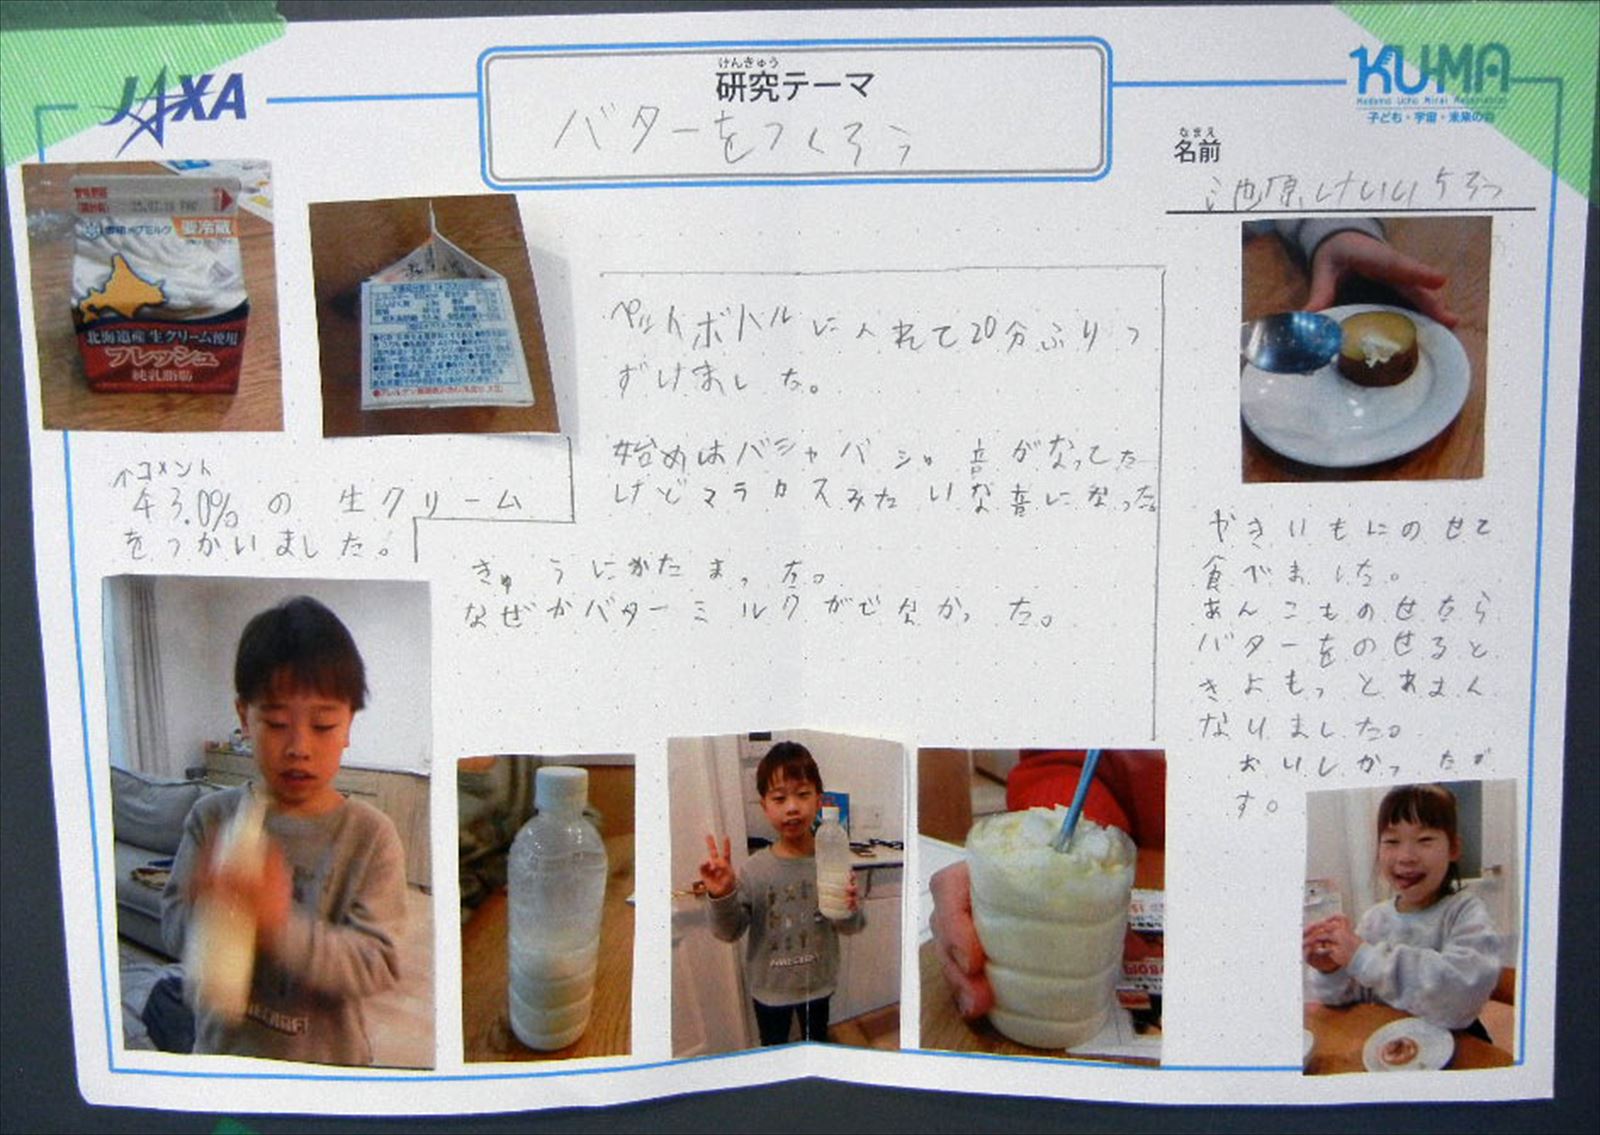 JAXA
けんきゅう
研究テーマ
バターをつくろう
KUMA
Kodomo Uchu Mirai Association
子ども・宇宙・未来の会
なまえ
名前
池原けいいちろう
要冷蔵
北海道産 生クリーム使用
フレッシュ
純乳脂肪
↑コメント
43.0%の生クリーム
をつかいました。
ペットボトルに入れて20分ふりつ
ずけました。
始めはバシャバシャ音がなってた
けどマラカスみたいな音になった。
きゅうにかたまった。
なぜかバターミルクがでなかった。
やきいもにのせて
食べました。
あんこものせたら
バターをのせると
きよもっとあまく
なりました。
おいしかったで
す。